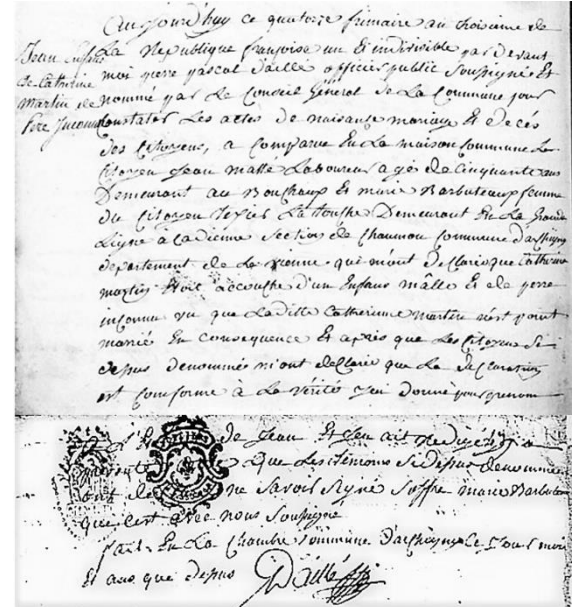 Aujourd'huy ce quatorze frimaire an troisieme de
La Republique françoise une Et indivisible par devant
moi pierre pascal d'aillé officier public Soussigné Et
nommé par Le Conseil General de La Commune pour
Constater Les actes de naissance mariage Et decés
des Citoyens, a Comparu En La maison Commune Le
Citoyen Jean matté Laboureur agé de Cinquante ans
Demeurant au Bouchaux Et marie Barbuteaux femme
du Citoyen Texier La touche Demeurant En La Grande
Ligne a section de Chaumon Commune d'archigny
departement de La vienne qui m'ont déClaré que Catherine
martin étoit accouchée d'un Enfant mâlle Et de perre
inconnu vu que Laditte Catherine martin n'est point
mariée En Consequence Et après que Les Citoyens Si
depus denommés m'ont déClaré que La déClaration
est Conforme à La vérité j'ai donné pour prenom
Jean Enfant
de Catherine
Martin de
Pere Inconnu
de Jean Et j'en ait redigé
que Les témoins Sidepus denommés
ont ne Savoir Signé Soffre marie Barbuteau
que C'est avec nous Soussigné
fait En La Chambre Commune d'archigny Le jour mois
Et ans que depus
Daillé